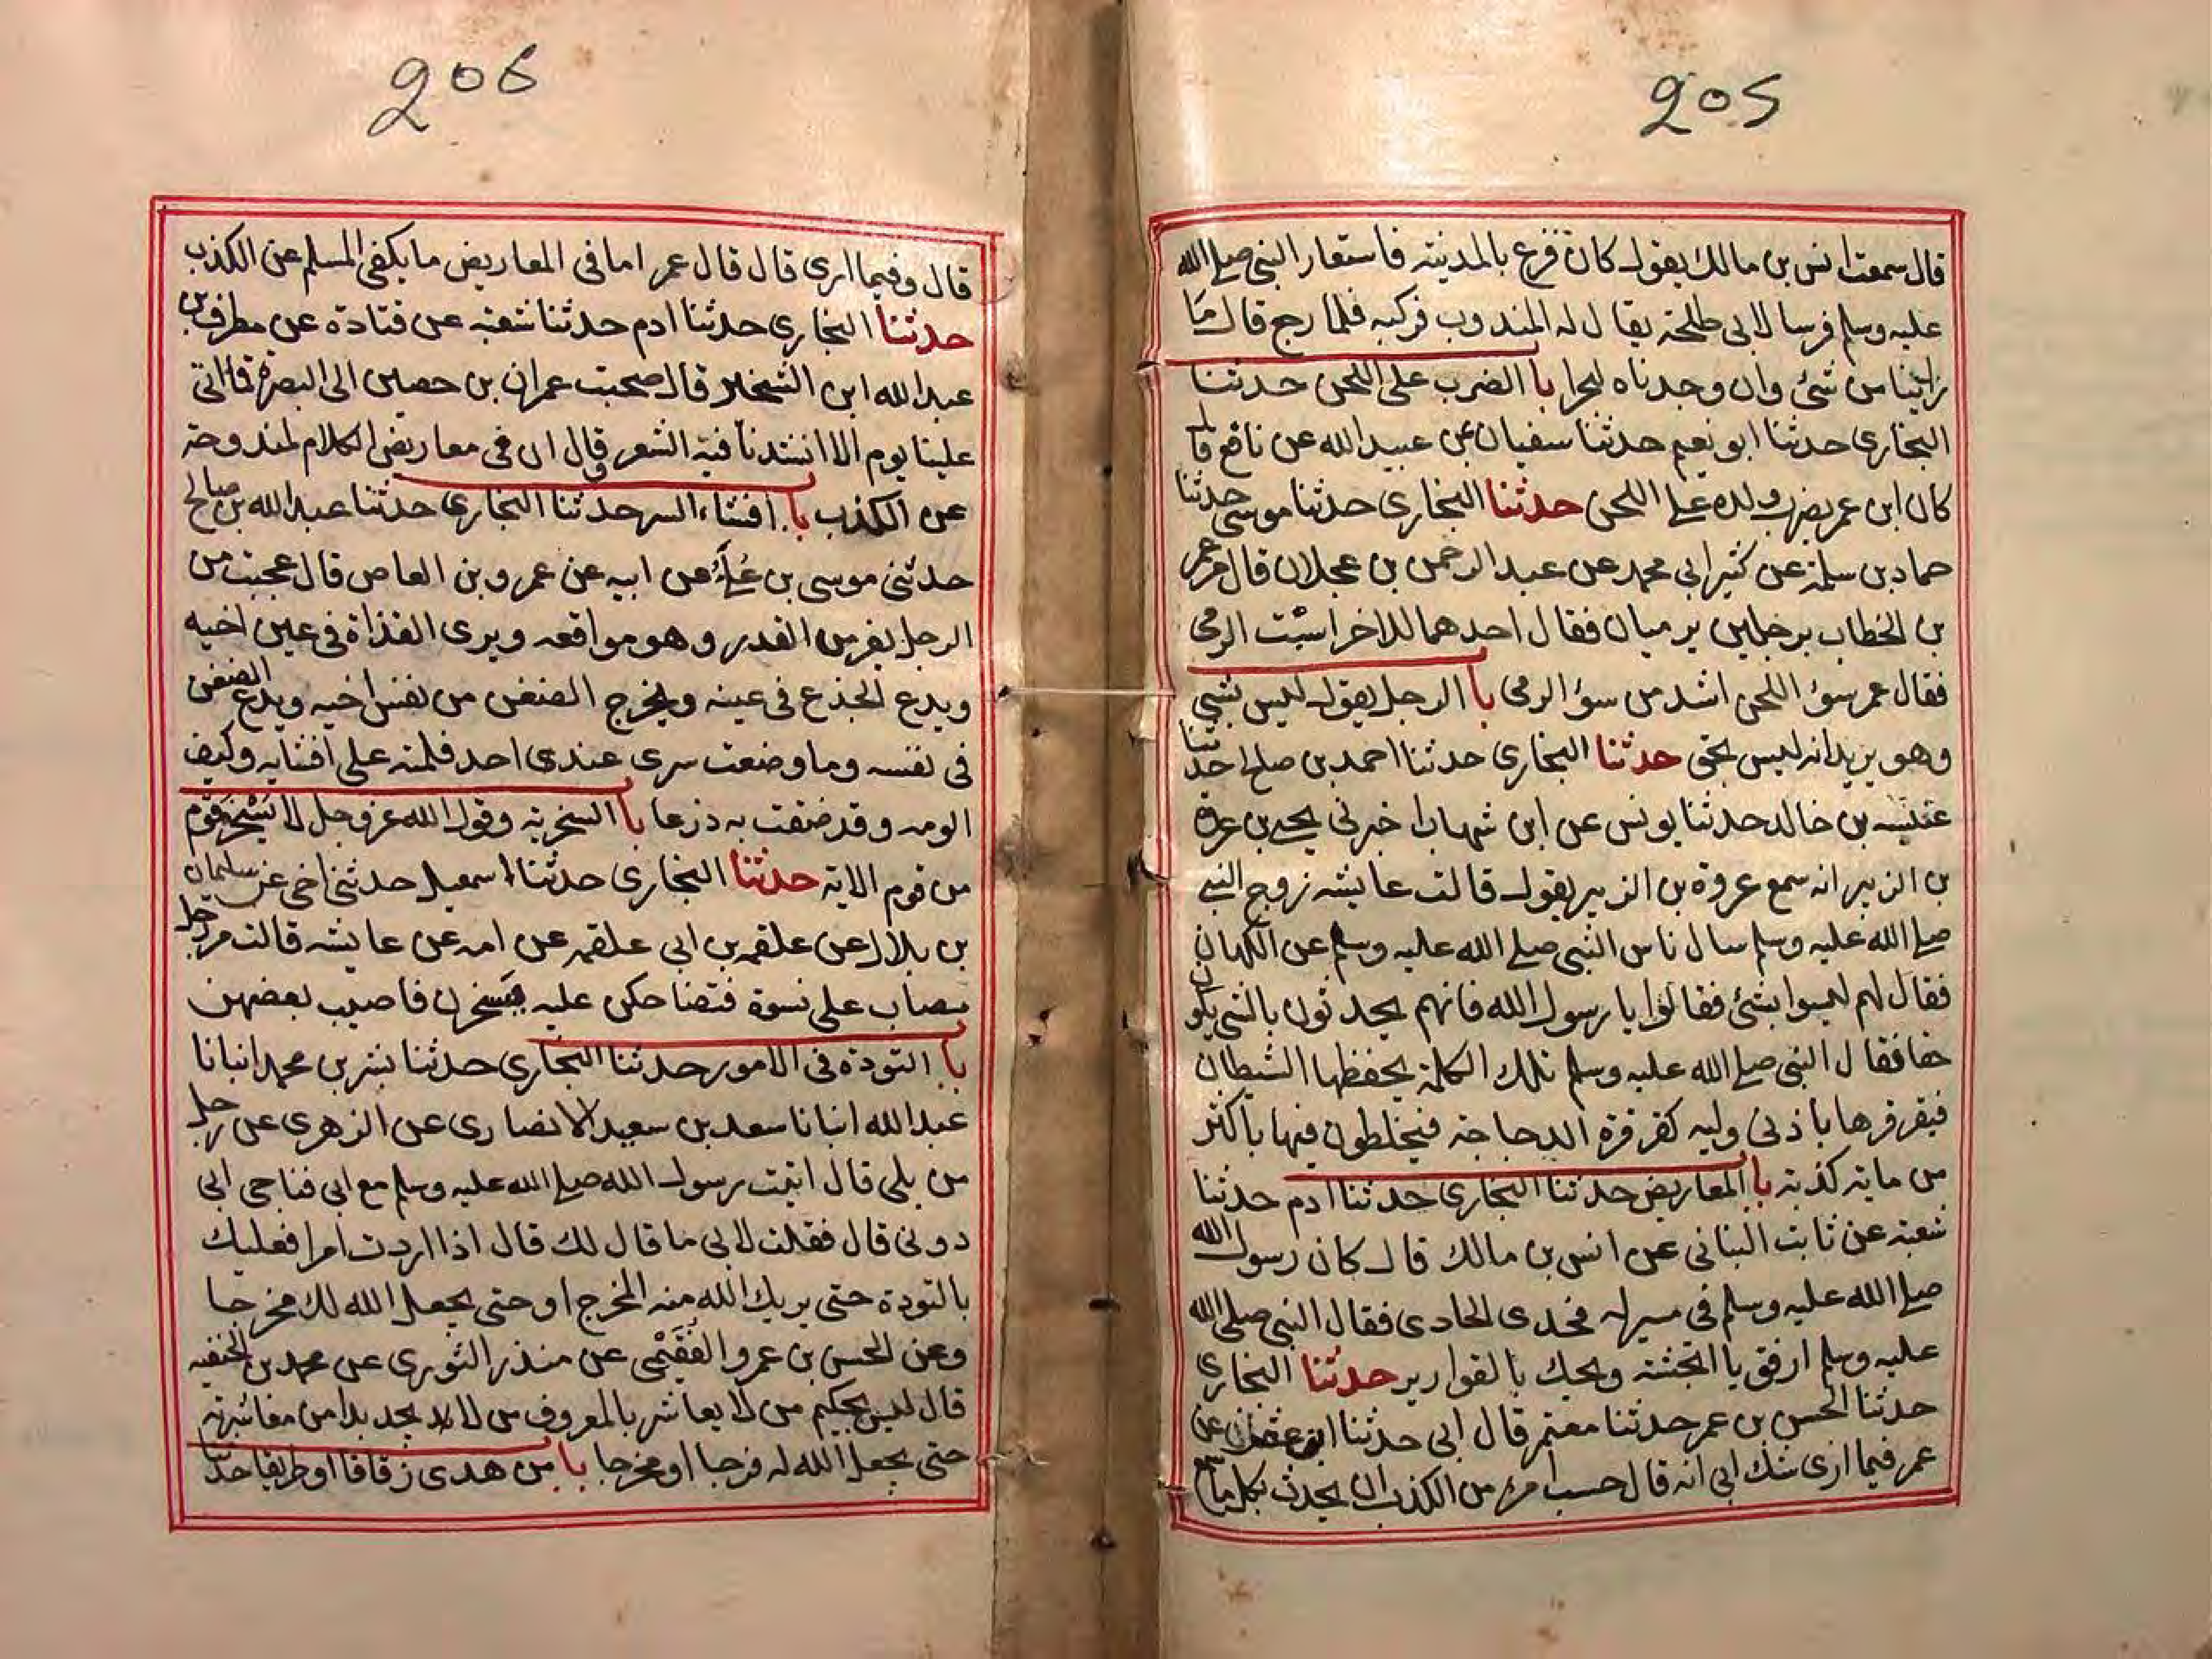 205
قال سمعت انس بن مالك يقول كان فزع بالمدينة فاستعار النبي صلى الله
عليه وسلم فرسا لابي طلحة يقال له المندوب فركبه فلما رجع قال ما
راينا من شئ وان وجدناه لبحرا با الضرب على اللحن حدثنا
البخارى حدثنا ابو نعيم حدثنا سفيان عن عبيد الله عن نافع قال
كان ابن عمر يضرب ولده على اللحن حدثنا البخارى حدثنا موسى حدثنا
حماد بن سلمة عن كثير ابي محمد عن عبد الرحمن بن عجلان قال مر عمر
بن الخطاب برجلين يرميان فقال احدهما للاخر اسبت الرمى
فقال عمر سؤ اللحن اشد من سؤ الرمى با الرجل يقول ليس بشي
وهو يريد انه ليس بحق حدثنا البخارى حدثنا احمد بن صالح حدثنا
عنبسه بن خالد حدثنا يونس عن ابن شهاب اخبرني يحيى بن عروة
بن الزبير انه سمع عروة بن الزبير يقول قالت عايشه زوج النبي
صلى الله عليه وسلم سال ناس النبي صلى الله عليه وسلم عن الكهان
فقال لهم ليسوا بشئ فقالوا يا رسول الله فانهم يحدثون بالشي يكون
حقا فقال النبي صلى الله عليه وسلم تلك الكلمة يحفظها الشيطان
فيقرقرها باذني وليه كقرقرة الدجاجة فيخلطون فيها باكثر
من ماية كذبة با المعاريض حدثنا البخاري حدثنا ادم حدثنا
شعبة عن ثابت البناني عن انس بن مالك قال كان رسول الله
صلى الله عليه وسلم في مسير له فحدى الحادى فقال النبي صلى الله
عليه وسلم ارفق يا انجشة ويحك بالقوارير حدثنا البخارى
حدثنا الحسن بن عمر حدثنا معتمر قال ابي حدثنا ابن عن
عمر فيما ارى شك ابي انه قال حسب امرء من الكذب ان يحدث بكل ما سمع
206
قال وفيما ارى قال قال عمر اما في المعاريض ما يكفي المسلم عن الكذب
حدثنا البخارى حدثنا ادم حدثنا شعبه عن قتادة عن مطرف بن
عبد الله ابن الشخير قال صحبت عمران بن حصين الى البصرة فما اتى
علينا يوم الا انشدنا فيه الشعر وقال ان في معاريض الكلام لمندوحة
عن الكذب با افشاء السر حدثنا البخارى حدثنا عبد الله بن صالح
حدثني موسى بن عُلَيّ عن ابيه عن عمرو بن العاص قال عجبت من
الرجل يفر من القدر وهو مواقعه ويرى القذاة في عين اخيه
ويدع الجذع في عينه ويخرج الضغن من نفس اخيه ويدع الضغن
في نفسه وما وضعت سرى عندى احد فلمته على افشايه وكيف
الومه وقد ضقت به ذرعا با السخرية وقول الله عز وجل لا يسخر قوم
من قوم الاية حدثنا البخارى حدثنا اسمعيل حدثني اخي عن سليمان
بن بلال عن علقمه بن ابي علقمه عن امه عن عايشه قالت مر رجل
بصاب على نسوة فتضاحكن عليه يسخرن فاصيب بعضهن
با التودة في الامور حدثنا البخارى حدثنا بشر بن محمد انبانا
عبد الله انبانا سعد بن سعيد الانصارى عن الزهرى عن رجل
من بلي قال اتيت رسول الله صلى الله عليه وسلم مع ابي فناجى ابي
دوني قال فقلت لابي ما قال لك قال اذا اردت امرا فعليك
بالتودة حتى يريك الله منه المخرج او حتى يجعل الله لك مخرجا
وعن الحسن بن عمرو الفقيمي عن منذر الثورى عن محمد بن الحنفيه
قال ليس بحكيم من لا يعاشر بالمعروف من لا يجد بدا من معاشرته
حتى يجعل الله له فرجا او مخرجا با من هدى زقاقا او طريقا حدثنا